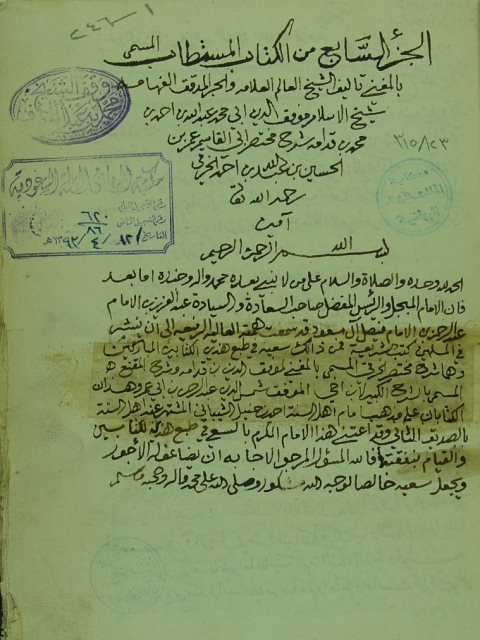 ٢٤٦-١
الجزء السابع من الكتاب المستطاب المسمى
بالمغني تأليف الشيخ العالم العلامه والحبر المدقق الفهامه
شيخ الاسلام موفق الدين ابي محمد عبد الله بن احمد بن
محمد بن قدامه شرح مختصر ابي القاسم عمر بن
الحسين بن عبد الله بن احمد الخرقي
رحمه الله تعالى
آمين
بسم الله الرحمن الرحيم
الحمد لله وحده والصلاة والسلام على من لا نبي بعده محمد واله وحزبه اما بعد
فان الامام المبجل والرئيس المفضل صاحب السعادة والسيادة عبد العزيز بن الامام
عبد الرحمن بن الامام فيصل ال سعود قد سمت همته العاليه الرفيعه الى ان ينشر
في المسلمين كتبا شرعية فمن ذلك سعيه في طبع هذين الكتابين المباركين
وهما شرح مختصر الخرقي المسمى بالمغني لموفق الدين بن قدامه وشرح المقنع
المسمى بالشرح الكبير لابن اخي الموفق شمس الدين عبد الرحمن بن ابي عمر وهذان
الكتابان على مذهب امام اهل السنة احمد بن حنبل الشيباني المشتهر عند اهل السنة
بالصديق الثاني وقد اعتنى هذا الامام المكرم بالسعي في طبع هذين الكتابين
والقيام بنفقته فالله المسؤل المرجو الاجابه ان يضاعف له الاجور
ويجعل سعيه خالصا لوجهه الله مشكور وصلى الله على محمد واله وصحبه وسلم
مكتبة الرياض العامة السعودية
٦٢٠
٨٦
التاريخ ١٣٩٢/٤/١٢ هـ
٣١٥/٢٣
مكتبة